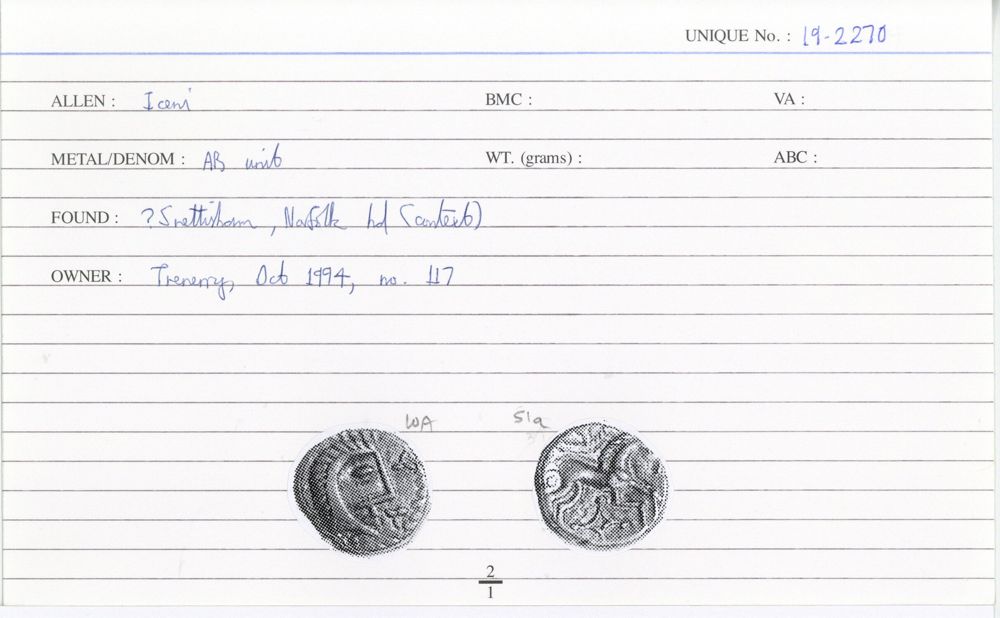 UNIQUE No. : 19-2270
ALLEN : Iceni BMC : VA :
METAL/DENOM : AR unit WT. (grams) : ABC :
FOUND : ? Snettisham, Norfolk hd (context)
OWNER : Trenerry, Oct 1994, no. 117
WA 51a
2
1